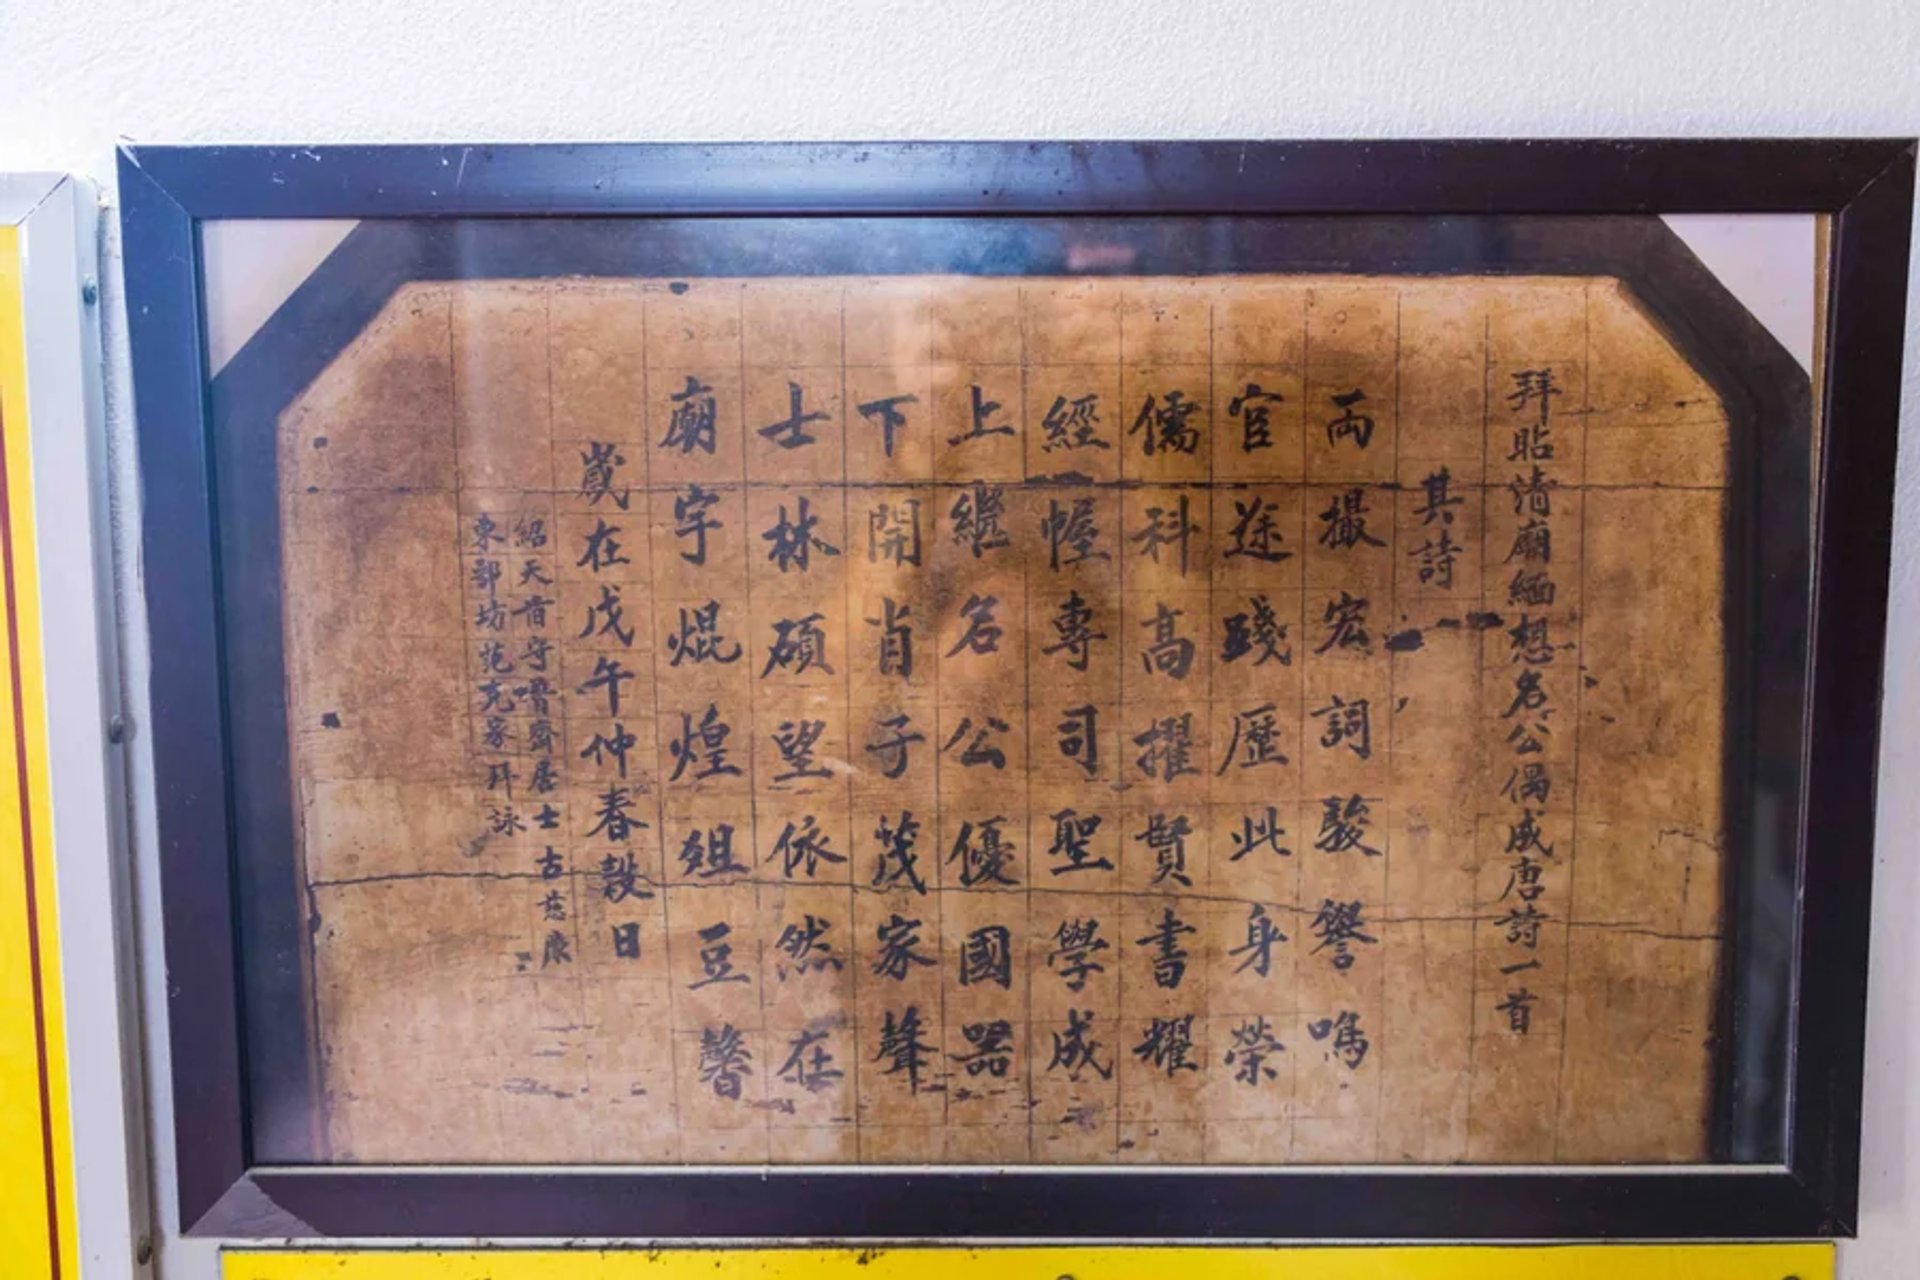 拜帖清廟緬想名公偶成唐詩一首
其詩
両撮宏詞駿譽鳴
官途踐歷此身榮
儒科高擢賢書耀
經幄專司聖學成
上繼名公優國器
下開肖子茂家聲
士林碩望依然在
廟宇焜煌俎豆馨
歲在戊午仲春穀日
紹天首守齋居士古慈廉
東鄂坊范克家拜詠